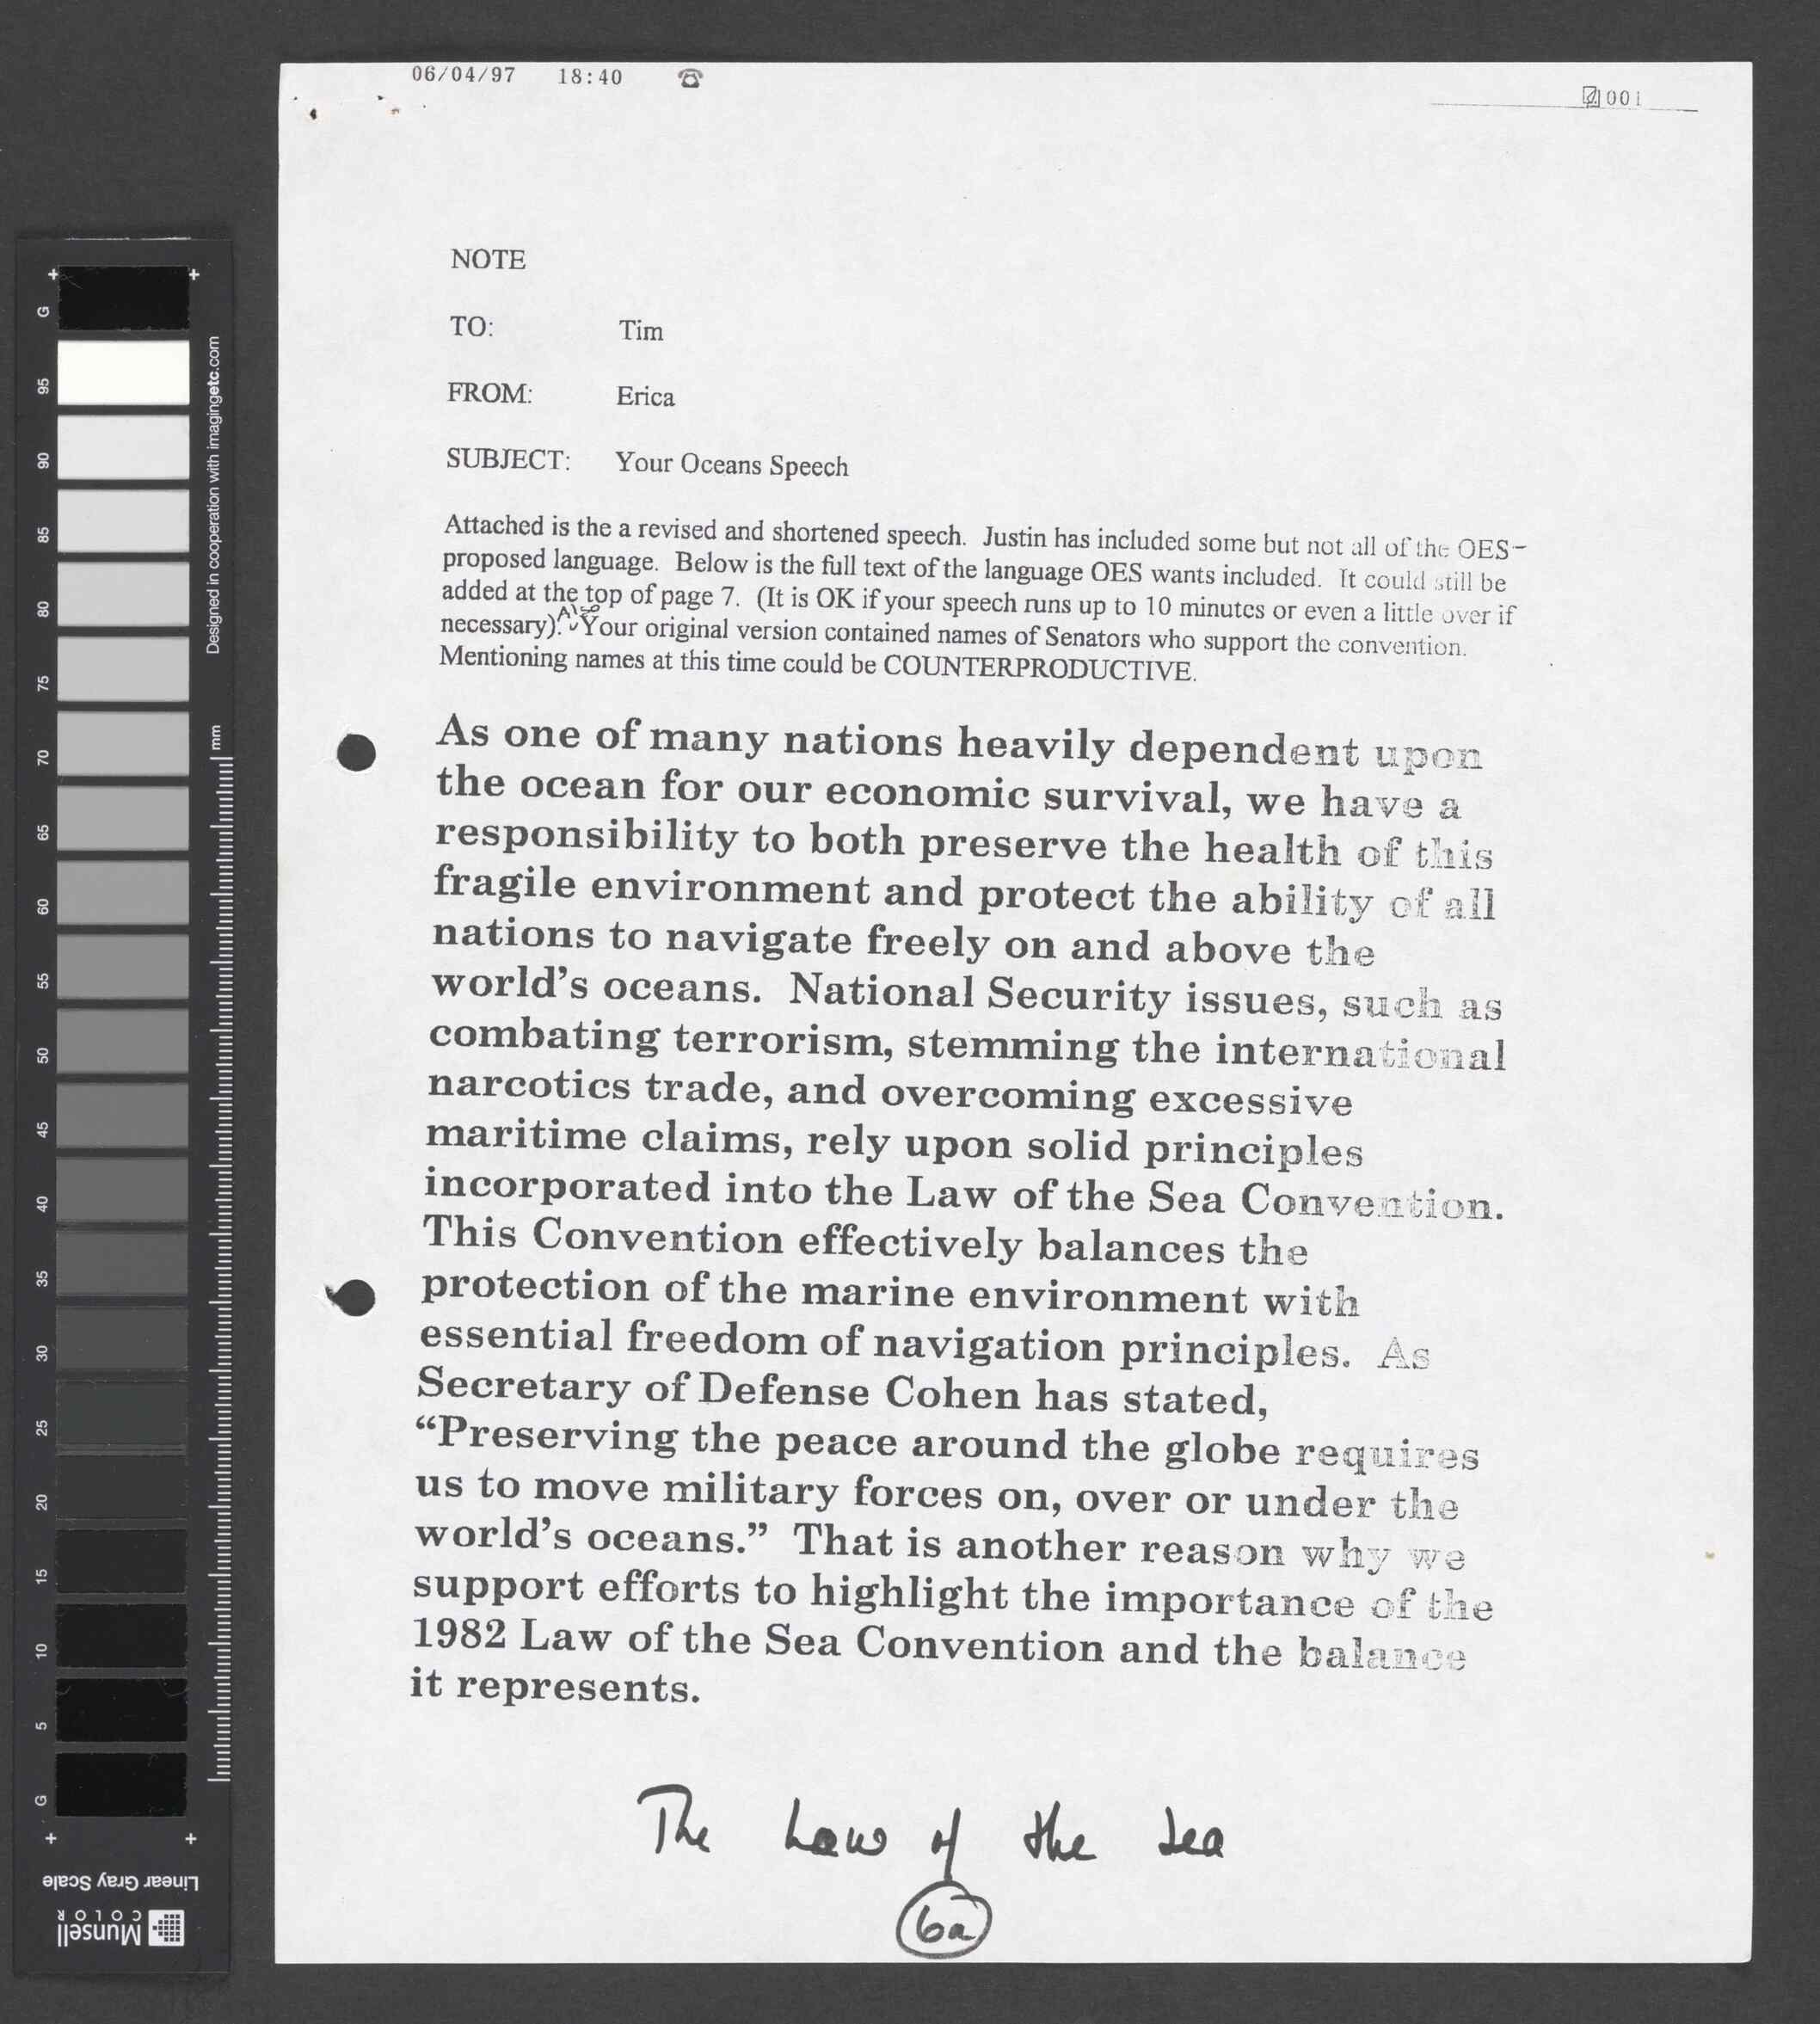 06/04/97 18:40 ☎
001
NOTE
TO: Tim
FROM: Erica
SUBJECT: Your Oceans Speech
Attached is the a revised and shortened speech. Justin has included some but not all of the OES-
proposed language. Below is the full text of the language OES wants included. It could still be
added at the top of page 7. (It is OK if your speech runs up to 10 minutes or even a little over if
Also
necessary). Your original version contained names of Senators who support the convention.
Mentioning names at this time could be COUNTERPRODUCTIVE.
As one of many nations heavily dependent upon
the ocean for our economic survival, we have a
responsibility to both preserve the health of this
fragile environment and protect the ability of all
nations to navigate freely on and above the
world's oceans. National Security issues, such as
combating terrorism, stemming the international
narcotics trade, and overcoming excessive
maritime claims, rely upon solid principles
incorporated into the Law of the Sea Convention.
This Convention effectively balances the
protection of the marine environment with
essential freedom of navigation principles. As
Secretary of Defense Cohen has stated,
“Preserving the peace around the globe requires
us to move military forces on, over or under the
world's oceans.” That is another reason why we
support efforts to highlight the importance of the
1982 Law of the Sea Convention and the balance
it represents.
The Law of the Sea
6a
G
95
90
85
80
75
70
65
60
55
50
45
40
35
30
25
20
15
10
5
G
Designed in cooperation with imagingetc.com
mm
Linear Gray Scale
Munsell
COLOR